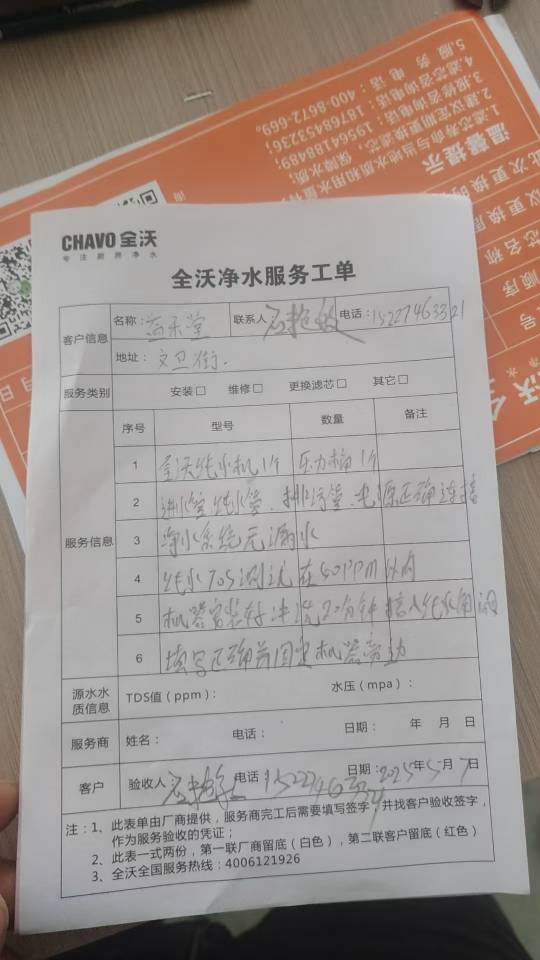 5.服务电话：400-8672-669。
4.滤芯咨询电话：18768453236；
3.报修咨询电话：19564188489；
2.建议定期更换滤芯，保障水质；
1.滤芯寿命与当地水质和用水量有
温馨提示
CHAVO 全沃
专注厨房净水
全沃净水服务工单
客户信息 名称： 联系人 电话：15227463321
地址：文卫街.
服务类别 安装□ 维修□ 更换滤芯□ 其它□
服务信息 序号 型号 数量 备注
1 全沃纯水机1个 压力桶1个
2 进水管.纯水管.排污管.电源正确连接
3 净水系统无漏水
4 纯水TDS测试在50PPM以内
5 机器安装好冲洗20分钟 接入纯水
6 填写正确并固定机器
源水水质信息 TDS值（ppm）： 水压（mpa）：
服务商 姓名： 电话： 日期： 年 月 日
客户 验收人 电话 日期：2025年5月7日
注：1、此表单由厂商提供，服务商完工后需要填写签字，并找客户验收签字，
作为服务验收的凭证；
2、此表一式两份，第一联厂商留底（白色），第二联客户留底（红色）
3、全沃全国服务热线：4006121926